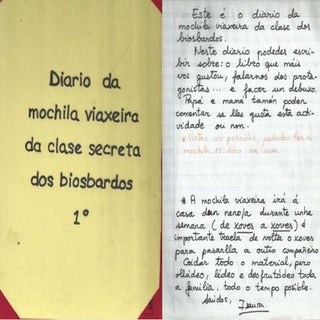 Diario da
mochila viaxeira
da clase secreta
dos biosbardos
1º
Este é o diario da
mochila viaxeira da clase dos
biosbardos.
Neste diario podedes escri-
bir sobre: o libro que máis
vos gustou, falarnos dos prota-
gonistas... e facer un debuxo.
Papá e mamá tamén poden
comentar se lles gusta esta acti-
vidade ou non.
* A mochila viaxeira irá á
casa dun neno/a durante unha
semana (de xoves a xoves) é
importante traela de volta o xoves
para pasarlla a outro compañeiro
Coidar todo o material, pero
olládeo, lédeo e desfrutádeo toda
a familia, todo o tempo posible.
Saúdos,